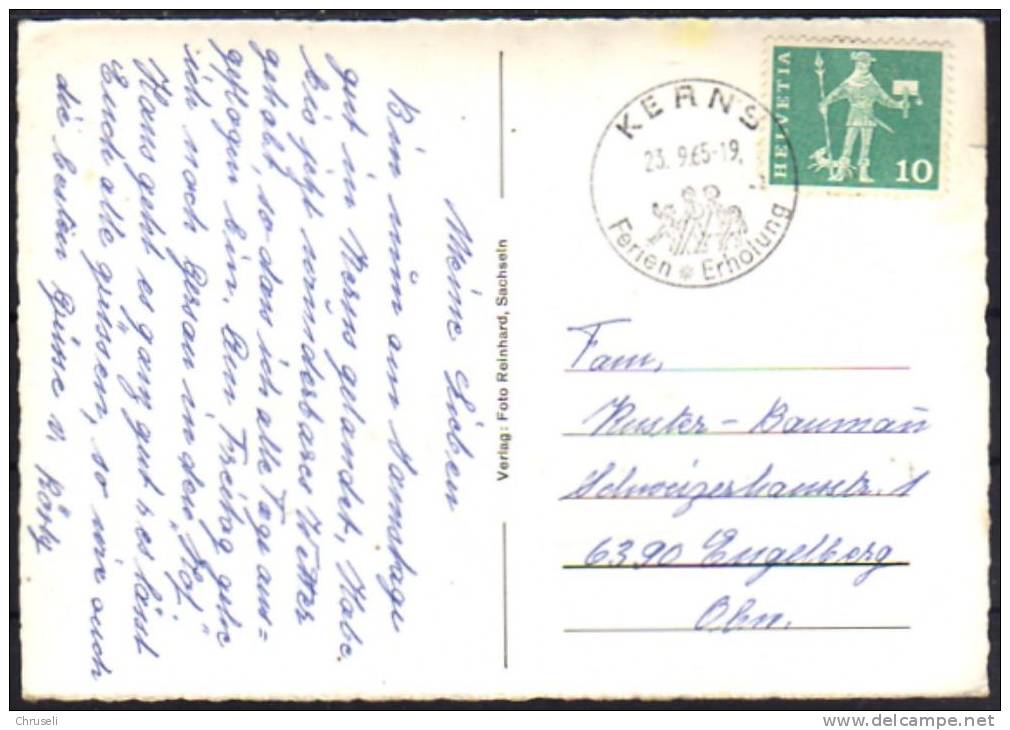 Meine Lieben
Bin nun am Samstag
gut in Kerns gelandet, Habe
bis jetzt wunderbares Wetter
gehabt, so dass ich alle Tage aus=
geflogen bin. Am Freitag gehe
ich nach Gersau in den "Hof"
Hans geht es ganz gut, es lässt
Euch alle grüssen, so wie auch
die besten Grüsse v.
Verlag: Foto Reinhard, Sachseln
KERNS
23. 9.65-19.
Ferien * Erholung
HELVETIA
10
Fam,
Kuster-Baumañ
Schweizerhausstr. 1
6390 Engelberg
Obw.
Chruseli
www.delcampe.net